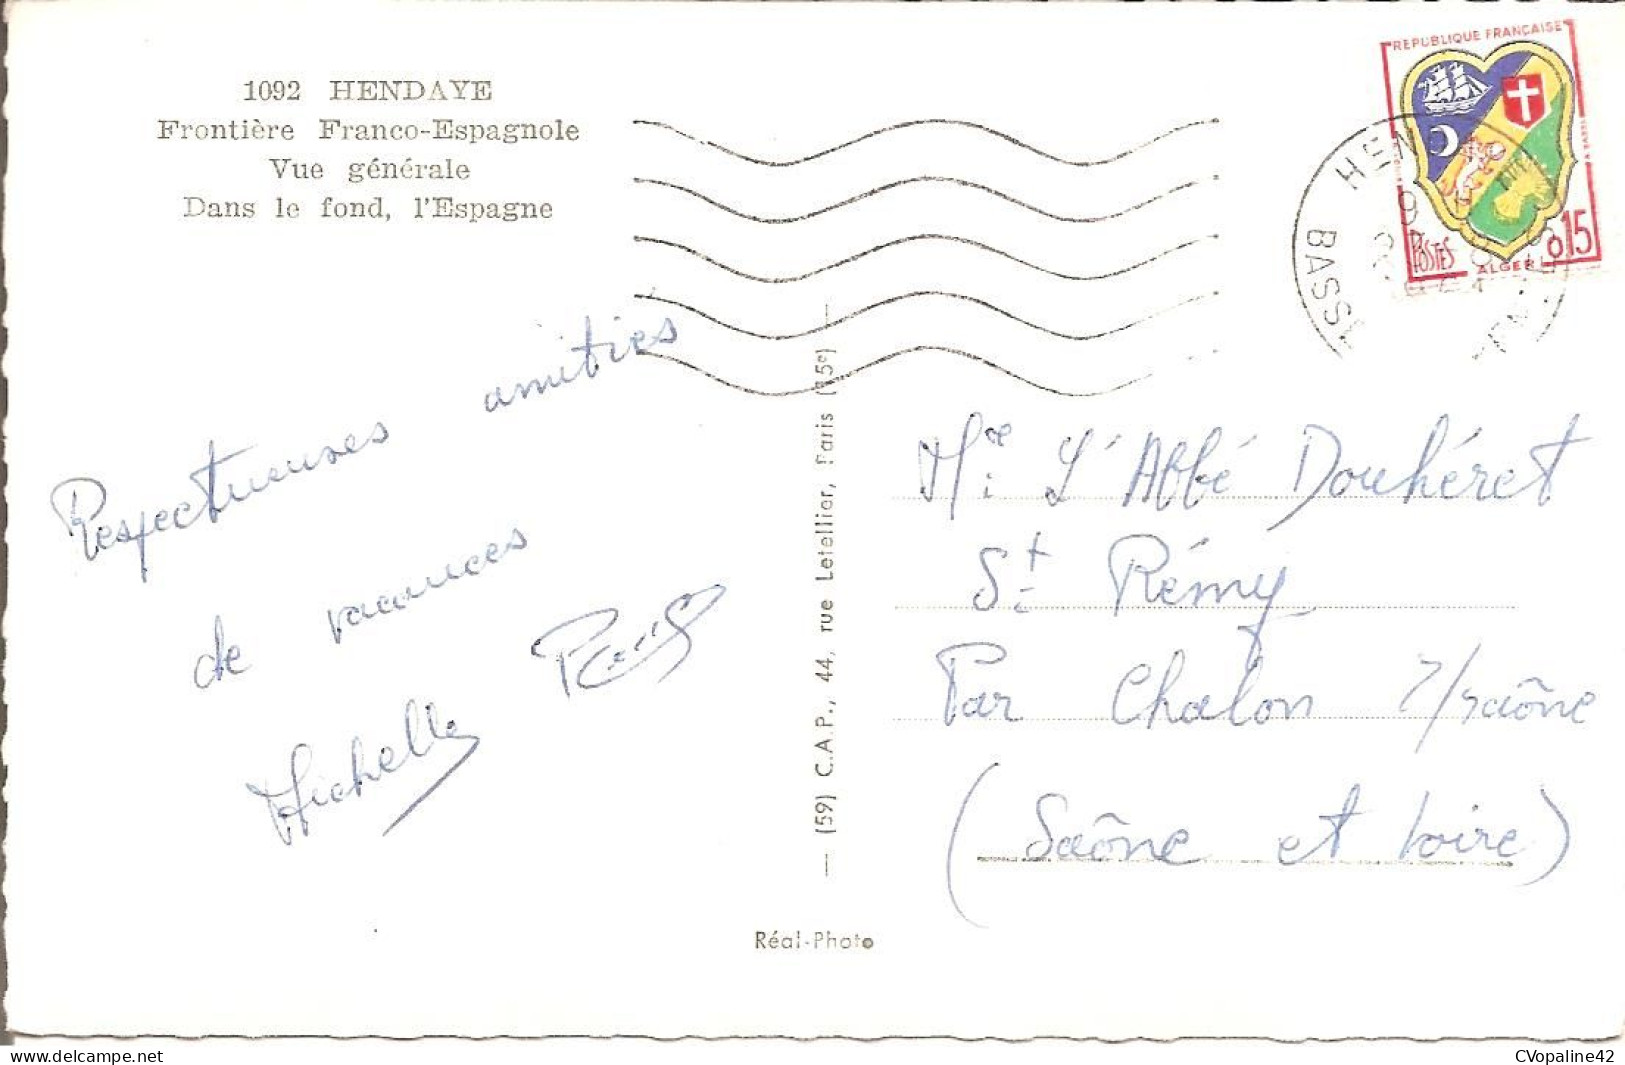 1092 HENDAYE
Frontière Franco-Espagnole
Vue générale
Dans le fond, l'Espagne
REPUBLIQUE FRANÇAISE
POSTES
ALGER
0,15
HEN
BASS
Respectueuses amitiés
de vacances
Michelle
— (59) C.A.P., 44, rue Letellier, Paris (15e) —
Mr. L'Abbé Douhéret
St Rémy
Par Chalon s/saône
(Saône et Loire)
Réal-Photo
CVopaline42
www.delcampe.net